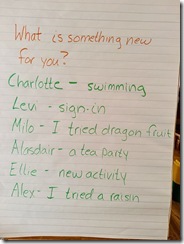 What is something new
for you?
Charlotte - swimming
Levi - sign-in
Milo - I tried dragon fruit
Alasdair - a tea party
Ellie - new activity
Alex - I tried a raisin